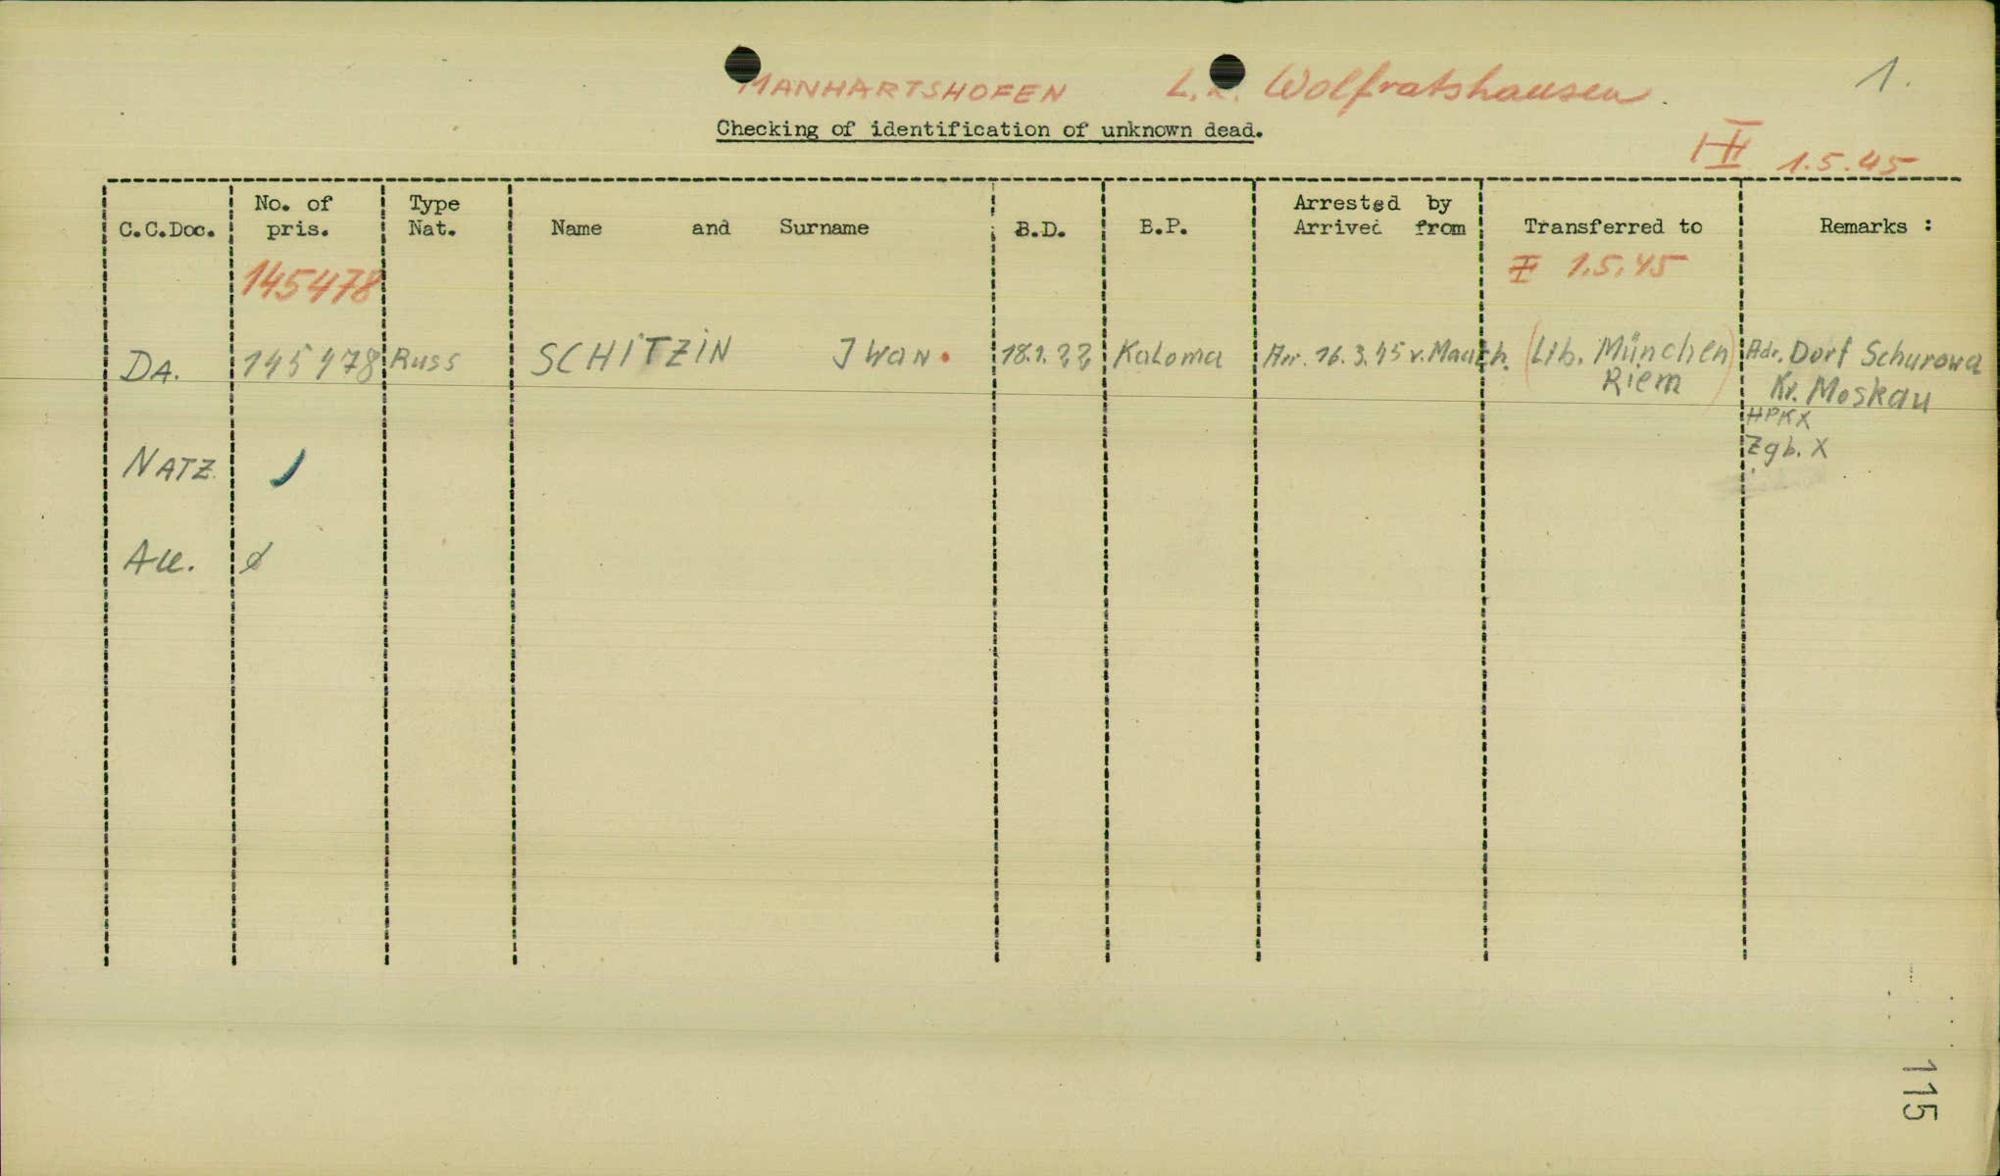 MANHARTSHOFEN L.K. Wolfratshausen. 1.
Checking of identification of unknown dead.
1.5.45
C.C.Doc. No. of pris. Type Nat. Name and Surname B.D. B.P. Arrested by Arrived from Transferred to Remarks :
145478 1.5.45
DA. 145478 Russ SCHITZIN Jwan. 18.1.22 Kaloma Arr. 16.3.45 v. Mauth. (Lib. München Riem) Adr. Dorf Schurowa
Kr. Moskau
HPKX
NATZ. Zgb. X
All.
115